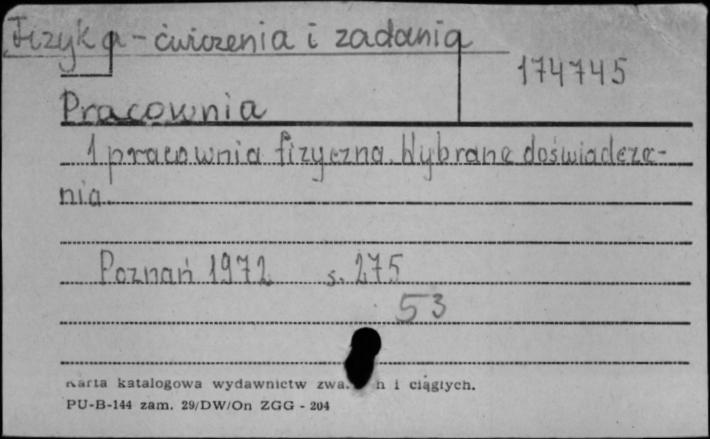 Fizyka - ćwiczenia i zadania
174745
Pracownia
1 pracownia fizyczna. Wybrane doświadcze-
nia.
Poznań 1972 s. 275
53
Karta katalogowa wydawnictw i ciągłych.
PU-B-144 zam. 29/DW/On ZGG - 204